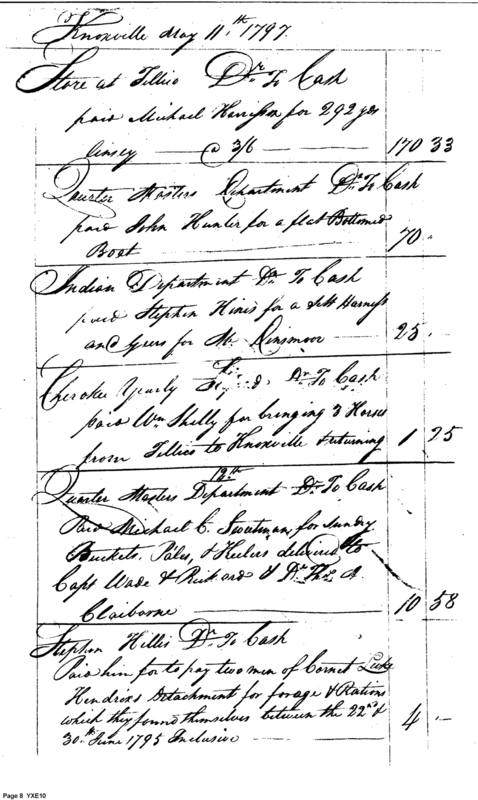 Knoxville May 11th 1797.
Store at Tellico Dr. To Cash
paid Michael Harrisson for 292 yds
linsey — @ 3/6 — 170 33
Quarter Masters Department Dr. To Cash
paid John Hunter for a flat Bottomed
Boat 70 -
Indian Department Dr. To Cash
paid Stephen Hines for a Sett Harness
and for Mr. Dinsmoor — 25 -
Cherokee Yearly Dr. To Cash
paid Wm. Shelly for bringing 3 Horses
from Tellico to Knoxville & returning 1 25
12th
Quarter Masters Department Dr. To Cash
Paid Michael C. for Sundry
Buckets, Pales, & delivered to
Capts Wade & Rickard & Dr. Thos. A.
Claiborne — 10 58
Stephen Hillis Dr. To Cash
Paid him for to pay two men of Cornet
Hendrixs Detachment for forage & Rations
which they found themselves between the 22nd &
30th June 1795 Inclusive — 4 -
Page 8 YXE10